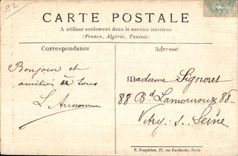 CARTE POSTALE
A utiliser seulement dans le service intérieur
(France, Algérie, Tunisie)
Correspondance
Adresse
Bonjour et
amitiés à tous
Madame
88 Bd Lamouroux 88
Vry. s. Seine